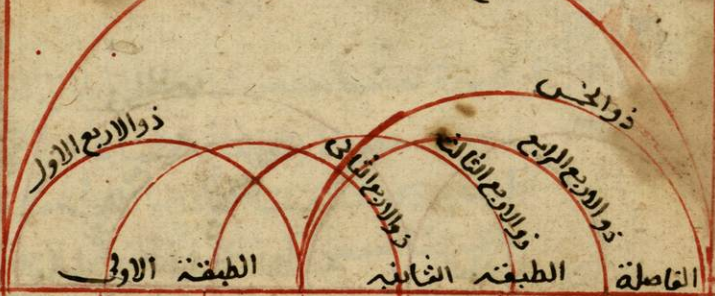 ذو الخمس
ذو الاربع الرابع
ذو الاربع الثالث
ذو الاربع الثاني
ذو الاربع الاول
الطبقة الاولى
الطبقة الثانيه
الفاصلة